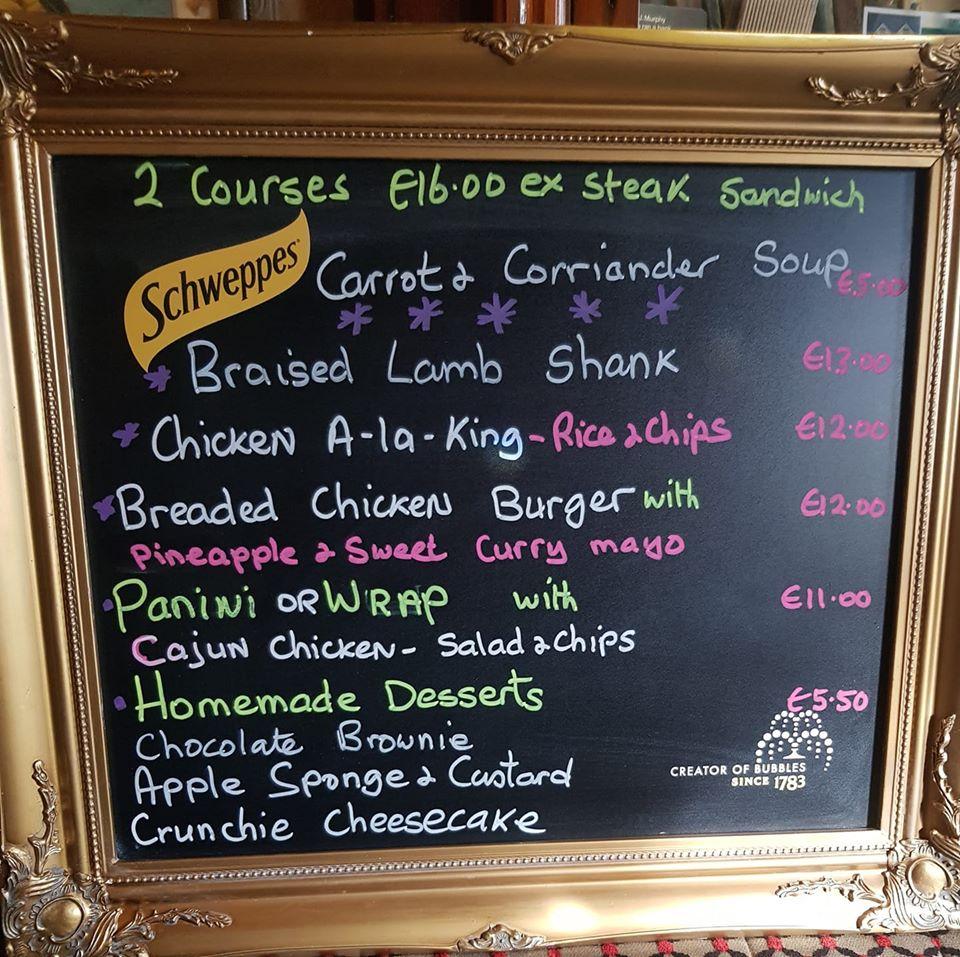 2 Courses €16.00 ex steak Sandwich
Schweppes
Carrot & Corriander Soup €5.00
* * * * *
* Braised Lamb Shank €13.00
* Chicken A-la-King - Rice & Chips €12.00
* Breaded Chicken Burger with €12.00
Pineapple & Sweet Curry mayo
• Panini OR WRAP with €11.00
Cajun Chicken - Salad & Chips
• Homemade Desserts €5.50
Chocolate Brownie
Apple Sponge & Custard
Crunchie Cheesecake
CREATOR OF BUBBLES
SINCE 1783